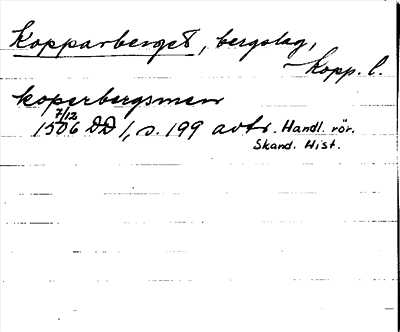 Kopparberget, bergslag,
Kopp. l.
koperbergsmen
7/12
1506 DD 1, s. 199 avtr. Handl. rör.
Skand. Hist.